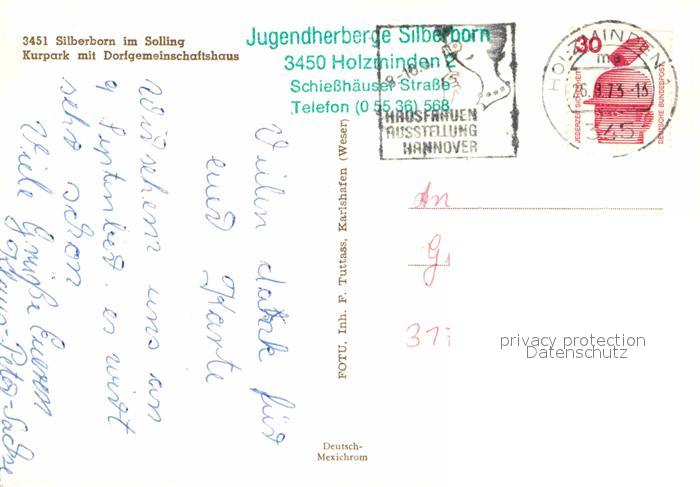 3451 Silberborn im Solling
Kurpark mit Dorfgemeinschaftshaus
Jugendherberge Silberborn
3450 Holzminden 2
Schießhäuser Straße
Telefon (0 55 36) 568
HAUSFRAUEN
AUSSTELLUNG
HANNOVER
HOLZMINDEN
ma
.9.73-13
345
30
JEDERZEIT SICHERHEIT
DEUTSCHE BUNDESPOST
Vielen dank für
eure Karte
wir sehen uns am
9 September. es wird
sehr schön
Viele Grüße Euer
Klaus-Peter
FOTU, Inh. F. Tuttass, Karlshafen (Weser)
Deutsch-
Mexichrom
An
G
31
privacy protection
Datenschutz